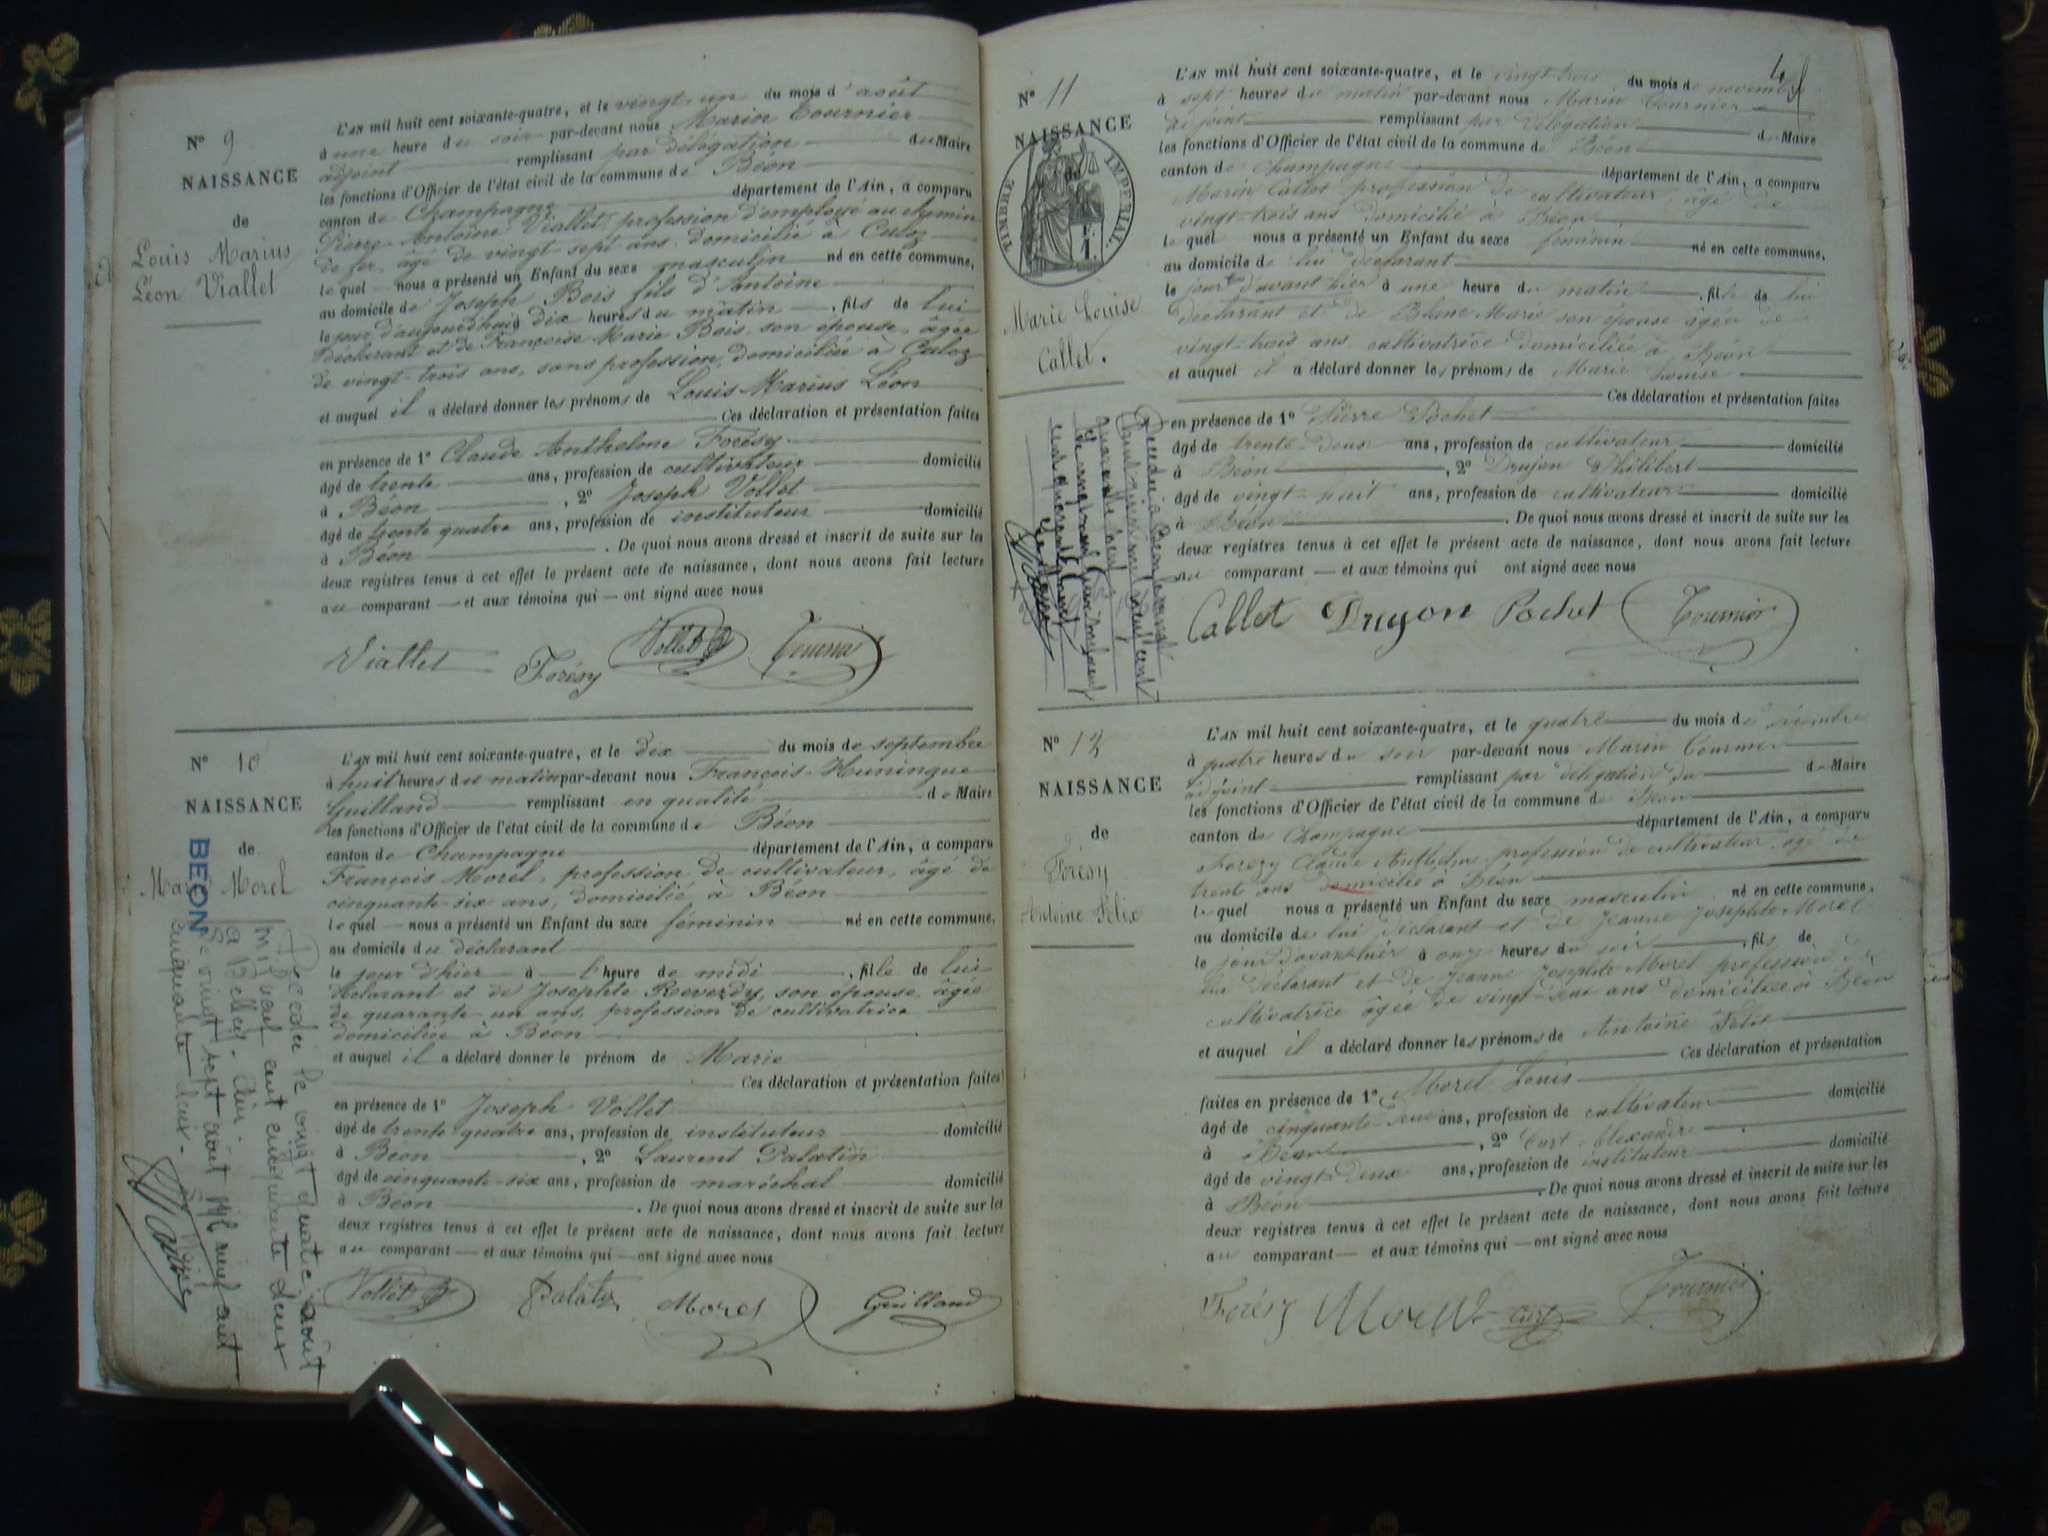 N° 9
NAISSANCE
de
Louis Marius
Léon Viallet
L'AN mil huit cent soixante-quatre, et le vingt-un du mois d'août
à une heure du soir par-devant nous Marin Tournier
adjoint remplissant par délégation du Maire
les fonctions d'Officier de l'état civil de la commune de Béon
canton de Champagne département de l'Ain, a comparu
Pierre-Antoine Viallet, profession d'employé au chemin
de fer, âgé de vingt-sept ans domicilié à Culoz
lequel nous a présenté un Enfant du sexe masculin né en cette commune,
au domicile de Joseph Bois fils d'Antoine
le jour d'aujourd'hui à dix heures du matin, fils de lui
déclarant et de Françoise Marie Bois, son épouse, âgée
de vingt-trois ans, sans profession, domiciliée à Culoz
et auquel il a déclaré donner les prénoms de Louis Marius Léon
Ces déclaration et présentation faites
en présence de 1° Claude Anthelme Forésy
âgé de trente ans, profession de cultivateur domicilié
à Béon, 2° Joseph Vollet
âgé de trente quatre ans, profession de instituteur domicilié
à Béon. De quoi nous avons dressé et inscrit de suite sur les
deux registres tenus à cet effet le présent acte de naissance, dont nous avons fait lecture
au comparant — et aux témoins qui — ont signé avec nous
Viallet Forésy Vollet Tournier
N° 10
NAISSANCE
de
Marie Morel
BEON
Décédée le vingt quatre août
mil neuf cent cinquante deux
à Belley - Ain -
Le vingt sept août Mil neuf cent
cinquante deux -
L'AN mil huit cent soixante-quatre, et le dix du mois de septembre
à huit heures du matin par-devant nous François-Huningue
Guilland remplissant en qualité de Maire
les fonctions d'Officier de l'état civil de la commune de Béon
canton de Champagne département de l'Ain, a comparu
François Morel, profession de cultivateur, âgé de
cinquante-six ans, domicilié à Béon
lequel — nous a présenté un Enfant du sexe féminin né en cette commune,
au domicile du déclarant
le jour d'hier à l'heure de midi, fille de lui
déclarant et de Josephte Reverdy, son épouse, âgée
de quarante-un ans, profession de cultivatrice
domiciliée à Béon
et auquel il a déclaré donner le prénom de Marie
Ces déclaration et présentation faites
en présence de 1° Joseph Vollet
âgé de trente quatre ans, profession de instituteur domicilié
à Béon, 2° Laurent Palatin
âgé de cinquante-six ans, profession de maréchal domicilié
à Béon. De quoi nous avons dressé et inscrit de suite sur les
deux registres tenus à cet effet le présent acte de naissance, dont nous avons fait lecture
au comparant — et aux témoins qui — ont signé avec nous
Vollet Palatin Morel Guilland
N° 11
NAISSANCE
de
TIMBRE IMPERIAL
Marie Louise
Callet.
L'AN mil huit cent soixante-quatre, et le vingt-trois du mois de novembre
à sept heures du matin par-devant nous Marin Tournier
adjoint remplissant par délégation de Maire
les fonctions d'Officier de l'état civil de la commune de Béon
canton de Champagne département de l'Ain, a comparu
Marin Callet profession de cultivateur, âgé de
vingt-trois ans domicilié à Béon
lequel nous a présenté un Enfant du sexe féminin né en cette commune,
au domicile de lui déclarant
le jour d'avant hier à une heure du matin, fille de lui
déclarant et de Blanc Marie son épouse âgée de
vingt-trois ans cultivatrice domiciliée à Béon
et auquel il a déclaré donner les prénoms de Marie Louise
Ces déclaration et présentation faites
en présence de 1° Pierre Pochet
âgé de trente-deux ans, profession de cultivateur domicilié
à Béon, 2° Drujon Philibert
âgé de vingt-huit ans, profession de cultivateur domicilié
à Béon. De quoi nous avons dressé et inscrit de suite sur les
deux registres tenus à cet effet le présent acte de naissance, dont nous avons fait lecture
au comparant — et aux témoins qui ont signé avec nous
Callet Drujon Pochet Tournier
N° 12
NAISSANCE
de
Forésy
Antoine Félix
L'AN mil huit cent soixante-quatre, et le quatre du mois de
à quatre heures du soir par-devant nous Marin Tournier
adjoint remplissant par délégation du de Maire
les fonctions d'Officier de l'état civil de la commune de Béon
canton de Champagne département de l'Ain, a comparu
Forézy Claude Anthelme profession de cultivateur âgé de
trente ans domicilié à Béon
lequel nous a présenté un Enfant du sexe masculin né en cette commune,
au domicile de lui déclarant et de Jeanne Josephte Morel
le jour d'avant-hier à onze heures du soir, fils de
lui déclarant et de Jeanne Josephte Morel profession de
cultivatrice âgée de vingt- ans domiciliée à Béon
et auquel il a déclaré donner les prénoms de Antoine Félix
Ces déclaration et présentation
faites en présence de 1° Morel Louis
âgé de cinquante ans, profession de cultivateur domicilié
à Béon, 2° Alexandre
âgé de vingt-deux ans, profession de instituteur domicilié
à Béon. De quoi nous avons dressé et inscrit de suite sur les
deux registres tenus à cet effet le présent acte de naissance, dont nous avons fait lecture
au comparant — et aux témoins qui — ont signé avec nous
Forésy Morel Tournier